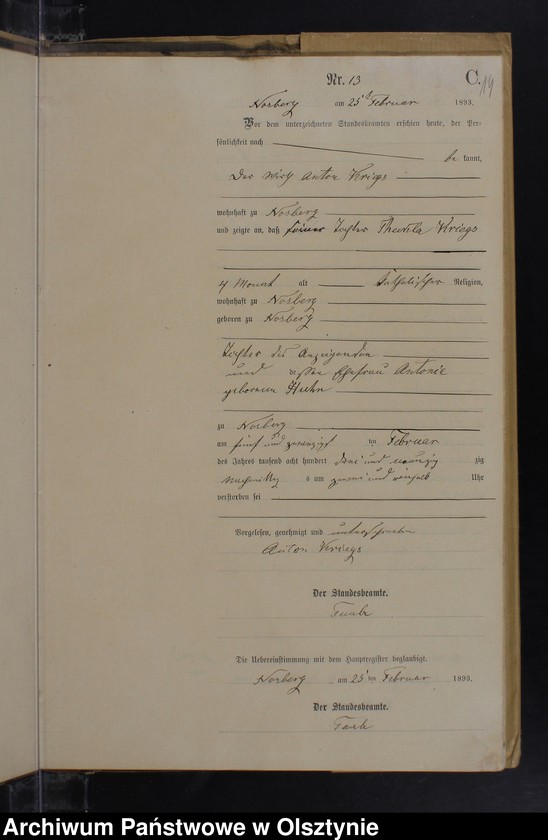 Nr. 13
C. 19
Norberg am 25 Februar 1893.
Vor dem unterzeichneten Standesbeamten erschien heute, der Per-
sönlichkeit nach
be kannt,
Der Wirth Anton Kriegs
wohnhaft zu Norberg
und zeigte an, daß seine Tochter Kriegs
4 Monat alt katholischer Religion,
wohnhaft zu Norberg
geboren zu Norberg
Tochter des Anzeigenden
und dessen Ehefrau Antonie
geborenen Huhn
zu Norberg
am fünf und zwanzigsten Februar
des Jahres tausend acht hundert drei und neunzig zig
Nachmittags um zwei und einhalb Uhr
verstorben sei
Vorgelesen, genehmigt und unterschrieben
Anton Kriegs
Der Standesbeamte.
Die Uebereinstimmung mit dem Hauptregister beglaubigt.
Norberg am 25 ten Februar 1893.
Der Standesbeamte.
Archiwum Państwowe w Olsztynie